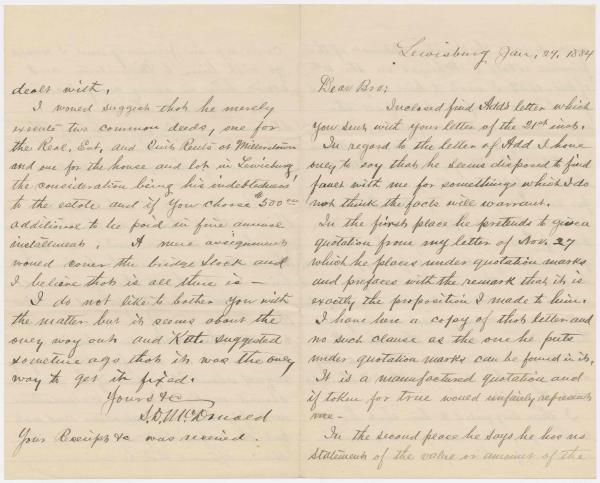 Lewisburg Jan, 29, 1884
Dear Bro;
Inclosed find Add's letter which
you sent with your letter of the 21st inst.
In regard to the letter of Add I have
only to say that he seems disposed to find
fault with me for somethings which I do
not think the facts will warrant.
In the first place he pretends to give a
quotation from my letter of Nov. 27
which he places under quotation marks
and prefaces with the remark that it is
exactly the proposition I made to him.
I have here a copy of that letter and
no such clause as the one he puts
under quotation marks can be found in it.
It is a manufactured quotation and
if taken for true would unfairly represent
me-
In the second place he says he has no
statement of the value or amount of the
dealt with.
I would suggest that he merely
execute two common deeds, one for
the Real, Est, and Rents at
and one for the house and lot in Lewisburg,
the consideration being his indebtedness
to the estate and if you choose $500
additional to be paid in five annual
installments. A mere assignment
would cover the bridge stock and
I believe that is all there is-
I do not like to bother you with
the matter but it seems about the
only way out and Kate suggested
sometime ago that it was the only
way to get it fixed.
Yours &c
McDonald
Your Receipt &c was received.